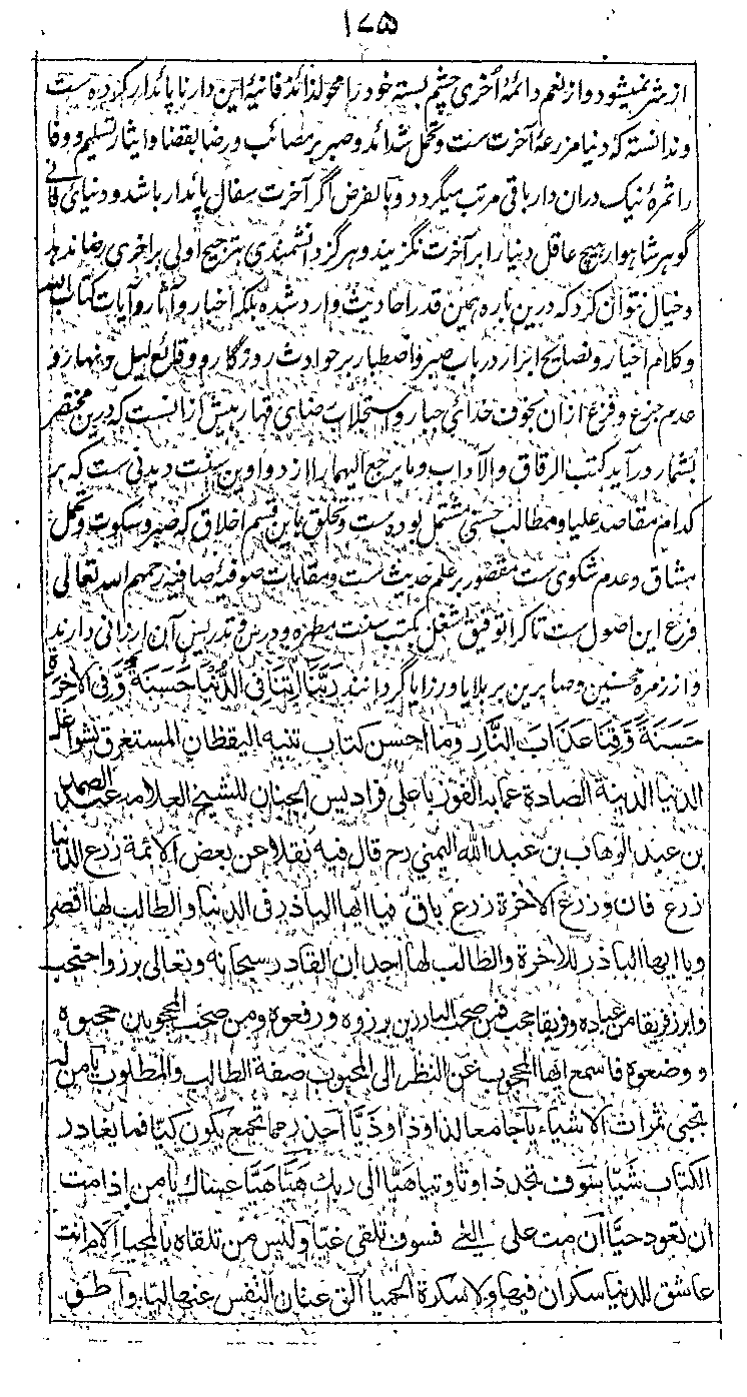 ۱۷۵
از شر نمیشود و از نعم دائمهٔ اُخری چشم بسته خود را محو لذائذ فانیهٔ این دار ناپائدار کرده ست
و ندانسته که دنیا مزرعهٔ آخرت ست و تحمل شدائد و صبر بر مصائب و رضا بقضا و ایثار تسلیم و وفا
را ثمرهٔ نیک دران دار باقی مرتب میگردد و بالفرض اگر آخرت سفال پائدار باشد و دنیای فانی
گوهر شاهوار هیچ عاقل دنیا را بر آخرت نگزیند و هرگز دانشمندی بترجیح اولی بر اخری رضا ندهد
و خیال نتوان کرد که درین باره همین قدر احادیث وارد شده بلکه اخبار و آثار و آیات کتاب الله
و کلام اخیار و نصایح ابرار در باب صبر و اصطبار بر حوادث روزگار و وقائع لیل و نهار و
عدم جزع و فزع ازان بخوف خدائی جبار و استجلاب رضای قهار بیش ازانست که درین مختصر
بشمار درآید کتب الرقاق و الآداب و ما یرجع الیهما را از دواوین سنت دیدنی ست که بر
کدام مقاصد علیا و مطالب حسنی مشتمل بوده ست و تخلق باین قسم اخلاق که صبر و سکوت و تحمل
مشاق و عدم شکوی ست مقصور بر علم حدیث ست و مقامات صوفیهٔ صافیه رحمهم الله تعالی
فرع این اصول ست تا کرا توفیق شغل کتب سنت مطهره و درس و تدریس آن ارزانی دارند
و از زمرهٔ محسنین و صابرین بر بلایا و رزایا گردانند رَبَّنَا آتِنَا فِی الدُّنْیَا حَسَنَةً وَّفِی الْآخِرَةِ
حَسَنَةً وَّقِنَا عَذَابَ النَّارِ وما احسن کتاب تنبیه الیقظان المستغرق بشواغل
الدنیا الدنیة الصادة عما به الفوز باعلی فرادیس الجنان للشیخ العلامه عبد الصمد
بن عبد الوهاب بن عبد الله الیمنی رح قال فیه نقلا عن بعض الائمة زرع الدنیا
زرع فان وزرع الآخرة زرع باق فیا ایها الباذر فی الدنیا والطالب لها اقصر
ویا ایها الباذر للآخرة والطالب لها اجد ان القادر سبحانه وتعالی برز واحتجب
وابرز فریقا من عباده وفریقا حجب فمن صحب البارزین برزوه ورفعوه ومن صحب المحجوبین حجبوه
و وضعوه فاسمع ایها المحجوب عن النظر الی المحبوب صفة الطالب والمطلوب یا من لیه
تجبی ثمرات الاشیاء یا جامعا لذا وذا وذیا احذر جما تجمع یکون کیا فما یغادر
الکتاب شیا بسوف تجد ذا وتا وتیا هیا الی ربك هیا هیا عساك یا من اذا مت
ان تعود حیا ان مت علی الغی فسوف تلقی غیا ولیس من تلقاه بالمحیا الا من انت
عاشق للدنیا سکران فیها ولا سکرة الحمیا الق عنان النفس عنها لیا واطو